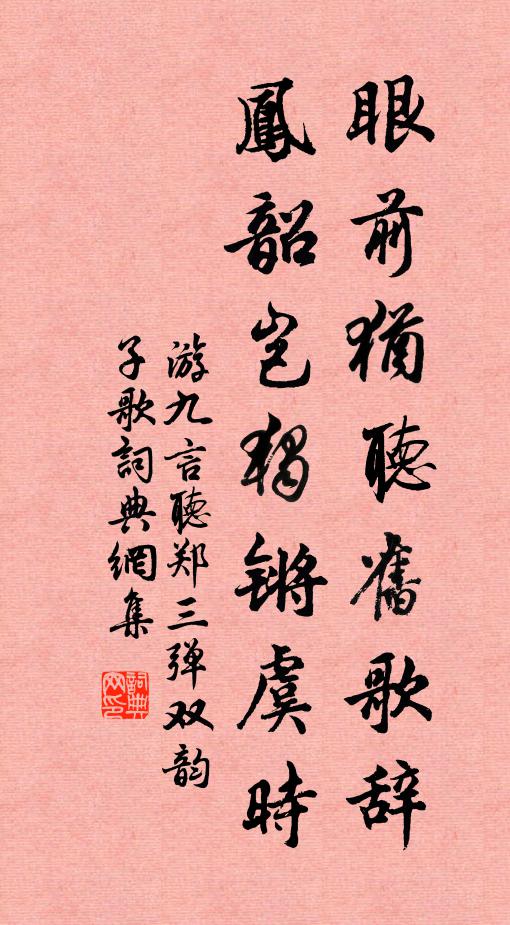 眼前猶聽舊歌辞
鳳韶岂獨鏘虞時
游九言聽郑三弹双韵
子歌詞典網集
詞典
网印